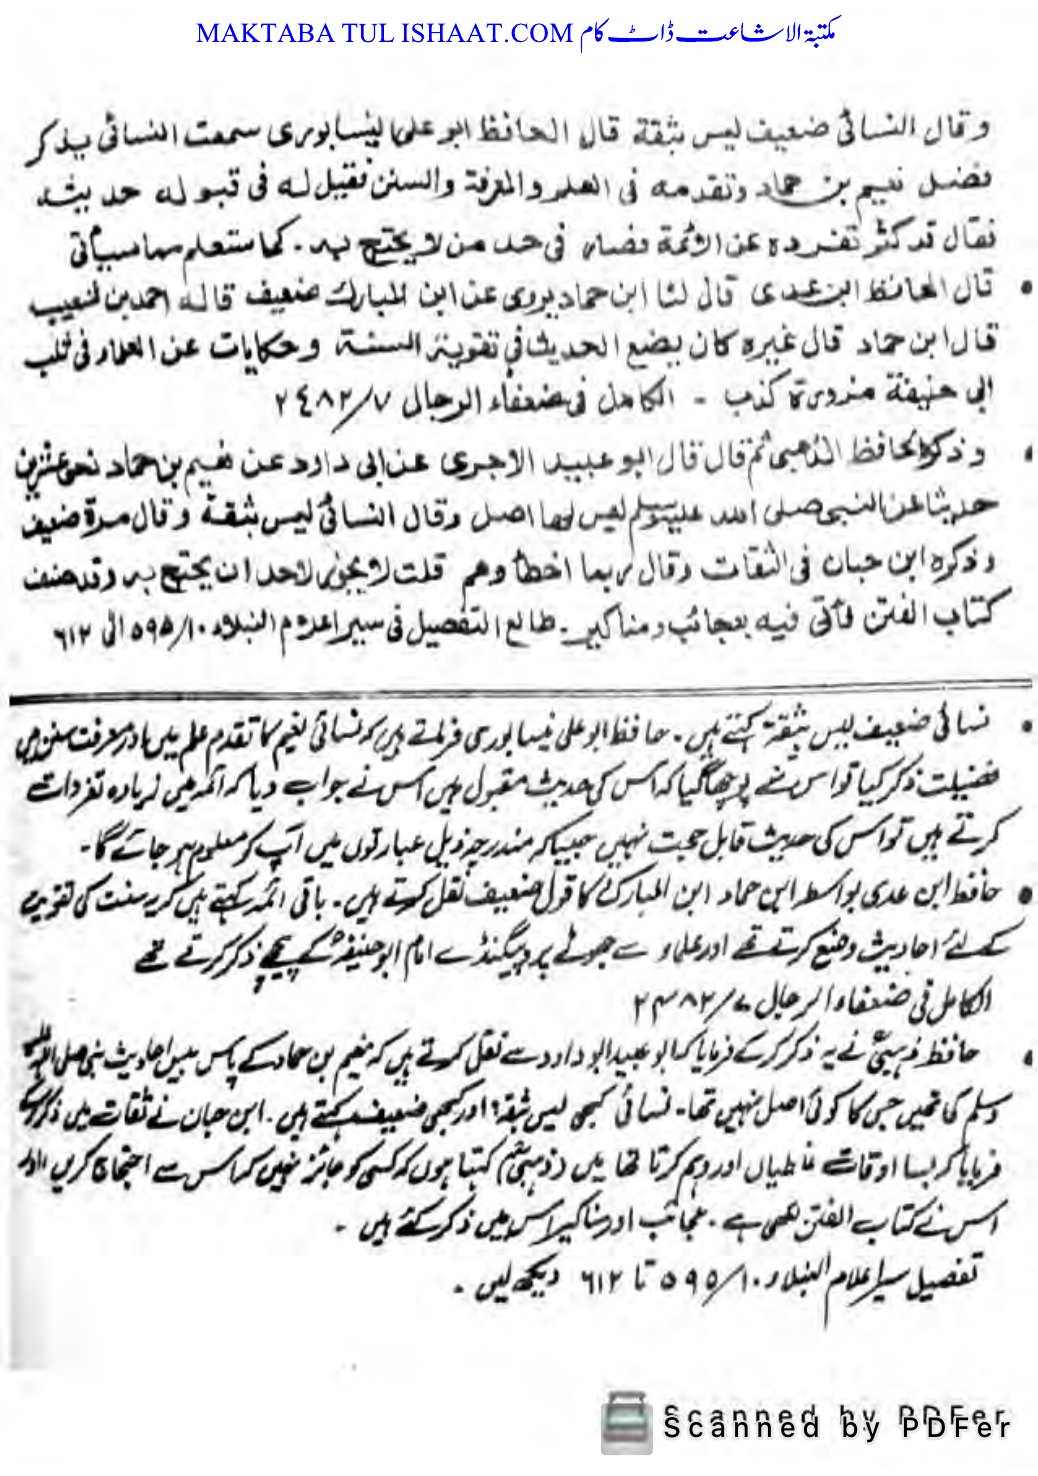 MAKTABA TUL ISHAAT.COM مکتبۃ الاشاعت ڈاٹ کام
وقال النسائی ضعیف لیس بثقة قال الحافظ ابو علی النیسابوری سمعت النسائی یذکر
فضل نعیم بن حماد وتقدمه فی العلم والمعرفة والسنن فقیل له فی قبوله حدیثه
فقال قد کثر تفرده عن الائمة فصار فی حد من لا یحتج به ۔ کما ستعلم مما سیأتی
• قال الحافظ ابن عدی قال لنا ابن حماد یروی عن ابن المبارک ضعیف قاله احمد بن شعیب
قال ابن حماد قال غیره کان یضع الحدیث فی تقویة السنة وحکایات عن العلماء فی ثلب
ابی حنیفة مزورة کذب ۔ الکامل فی ضعفاء الرجال ۷/۲٤۸۲
• وذکره الحافظ الذهبی ثم قال قال ابو عبید الاجری عن ابی داود عن نعیم بن حماد نحو عشرین
حدیثا عن النبی صلی الله علیه وسلم لیس لها اصل وقال النسائی لیس بثقة وقال مرة ضعیف
وذکره ابن حبان فی الثقات وقال ربما اخطأ وهم قلت لا یجوز لاحد ان یحتج به وقد صنف
کتاب الفتن فأتی فیه بعجائب ومناکیر ۔ طالع التفصیل فی سیر اعلام النبلاء ۱۰/۵۹۵ الی ۶۱۲
• نسائی ضعیف لیس بثقۃ کہتے ہیں ۔ حافظ ابو علی نیسابوری فرماتے ہیں کہ نسائی نعیم کا تقدم علم میں اور معرفت سنن میں
فضیلت ذکر کیا تو اس سے پوچھا گیا کہ اس کی حدیث مقبول ہیں اس نے جواب دیا کہ ائمہ میں زیادہ تفردات
کرتے ہیں تو اس کی حدیث قابل حجت نہیں جیسا کہ مندرجہ ذیل عبارتوں میں آپ کو معلوم ہو جائے گا ۔
• حافظ ابن عدی بواسطہ ابن حماد ابن المبارک کا قول ضعیف نقل کرتے ہیں ۔ باقی ائمہ کہتے ہیں کہ یہ سنت کی تقویت
کے لئے احادیث وضع کرتے تھے اور علماء سے جھوٹے پروپیگنڈے امام ابو حنیفہؒ کے پیچھے ذکر کرتے تھے
الکامل فی ضعفاء الرجال ۷/۲۴۸۲
• حافظ ذہبیؒ نے یہ ذکر کر کے فرمایا کہ ابو عبید ابو داود سے نقل کرتے ہیں کہ نعیم بن حماد کے پاس بیس احادیث نبی صلی اللہ علیہ
وسلم کی تھیں جس کا کوئی اصل نہیں تھا ۔ نسائی کبھی لیس بثقۃ اور کبھی ضعیف کہتے ہیں ۔ ابن حبان نے ثقات میں ذکر کر کے
فرمایا کہ بسا اوقات غلطیاں اور وہم کرتا تھا میں (ذہبیؒ) کہتا ہوں کہ کسی کو جائز نہیں کہ اس سے احتجاج کریں اور
اس نے کتاب الفتن لکھی ہے ۔ عجائب اور مناکیر اس میں ذکر کئے ہیں ۔
تفصیل سیر اعلام النبلاء ۱۰/۵۹۵ تا ۶۱۲ دیکھ لیں ۔
Scanned by PDFer